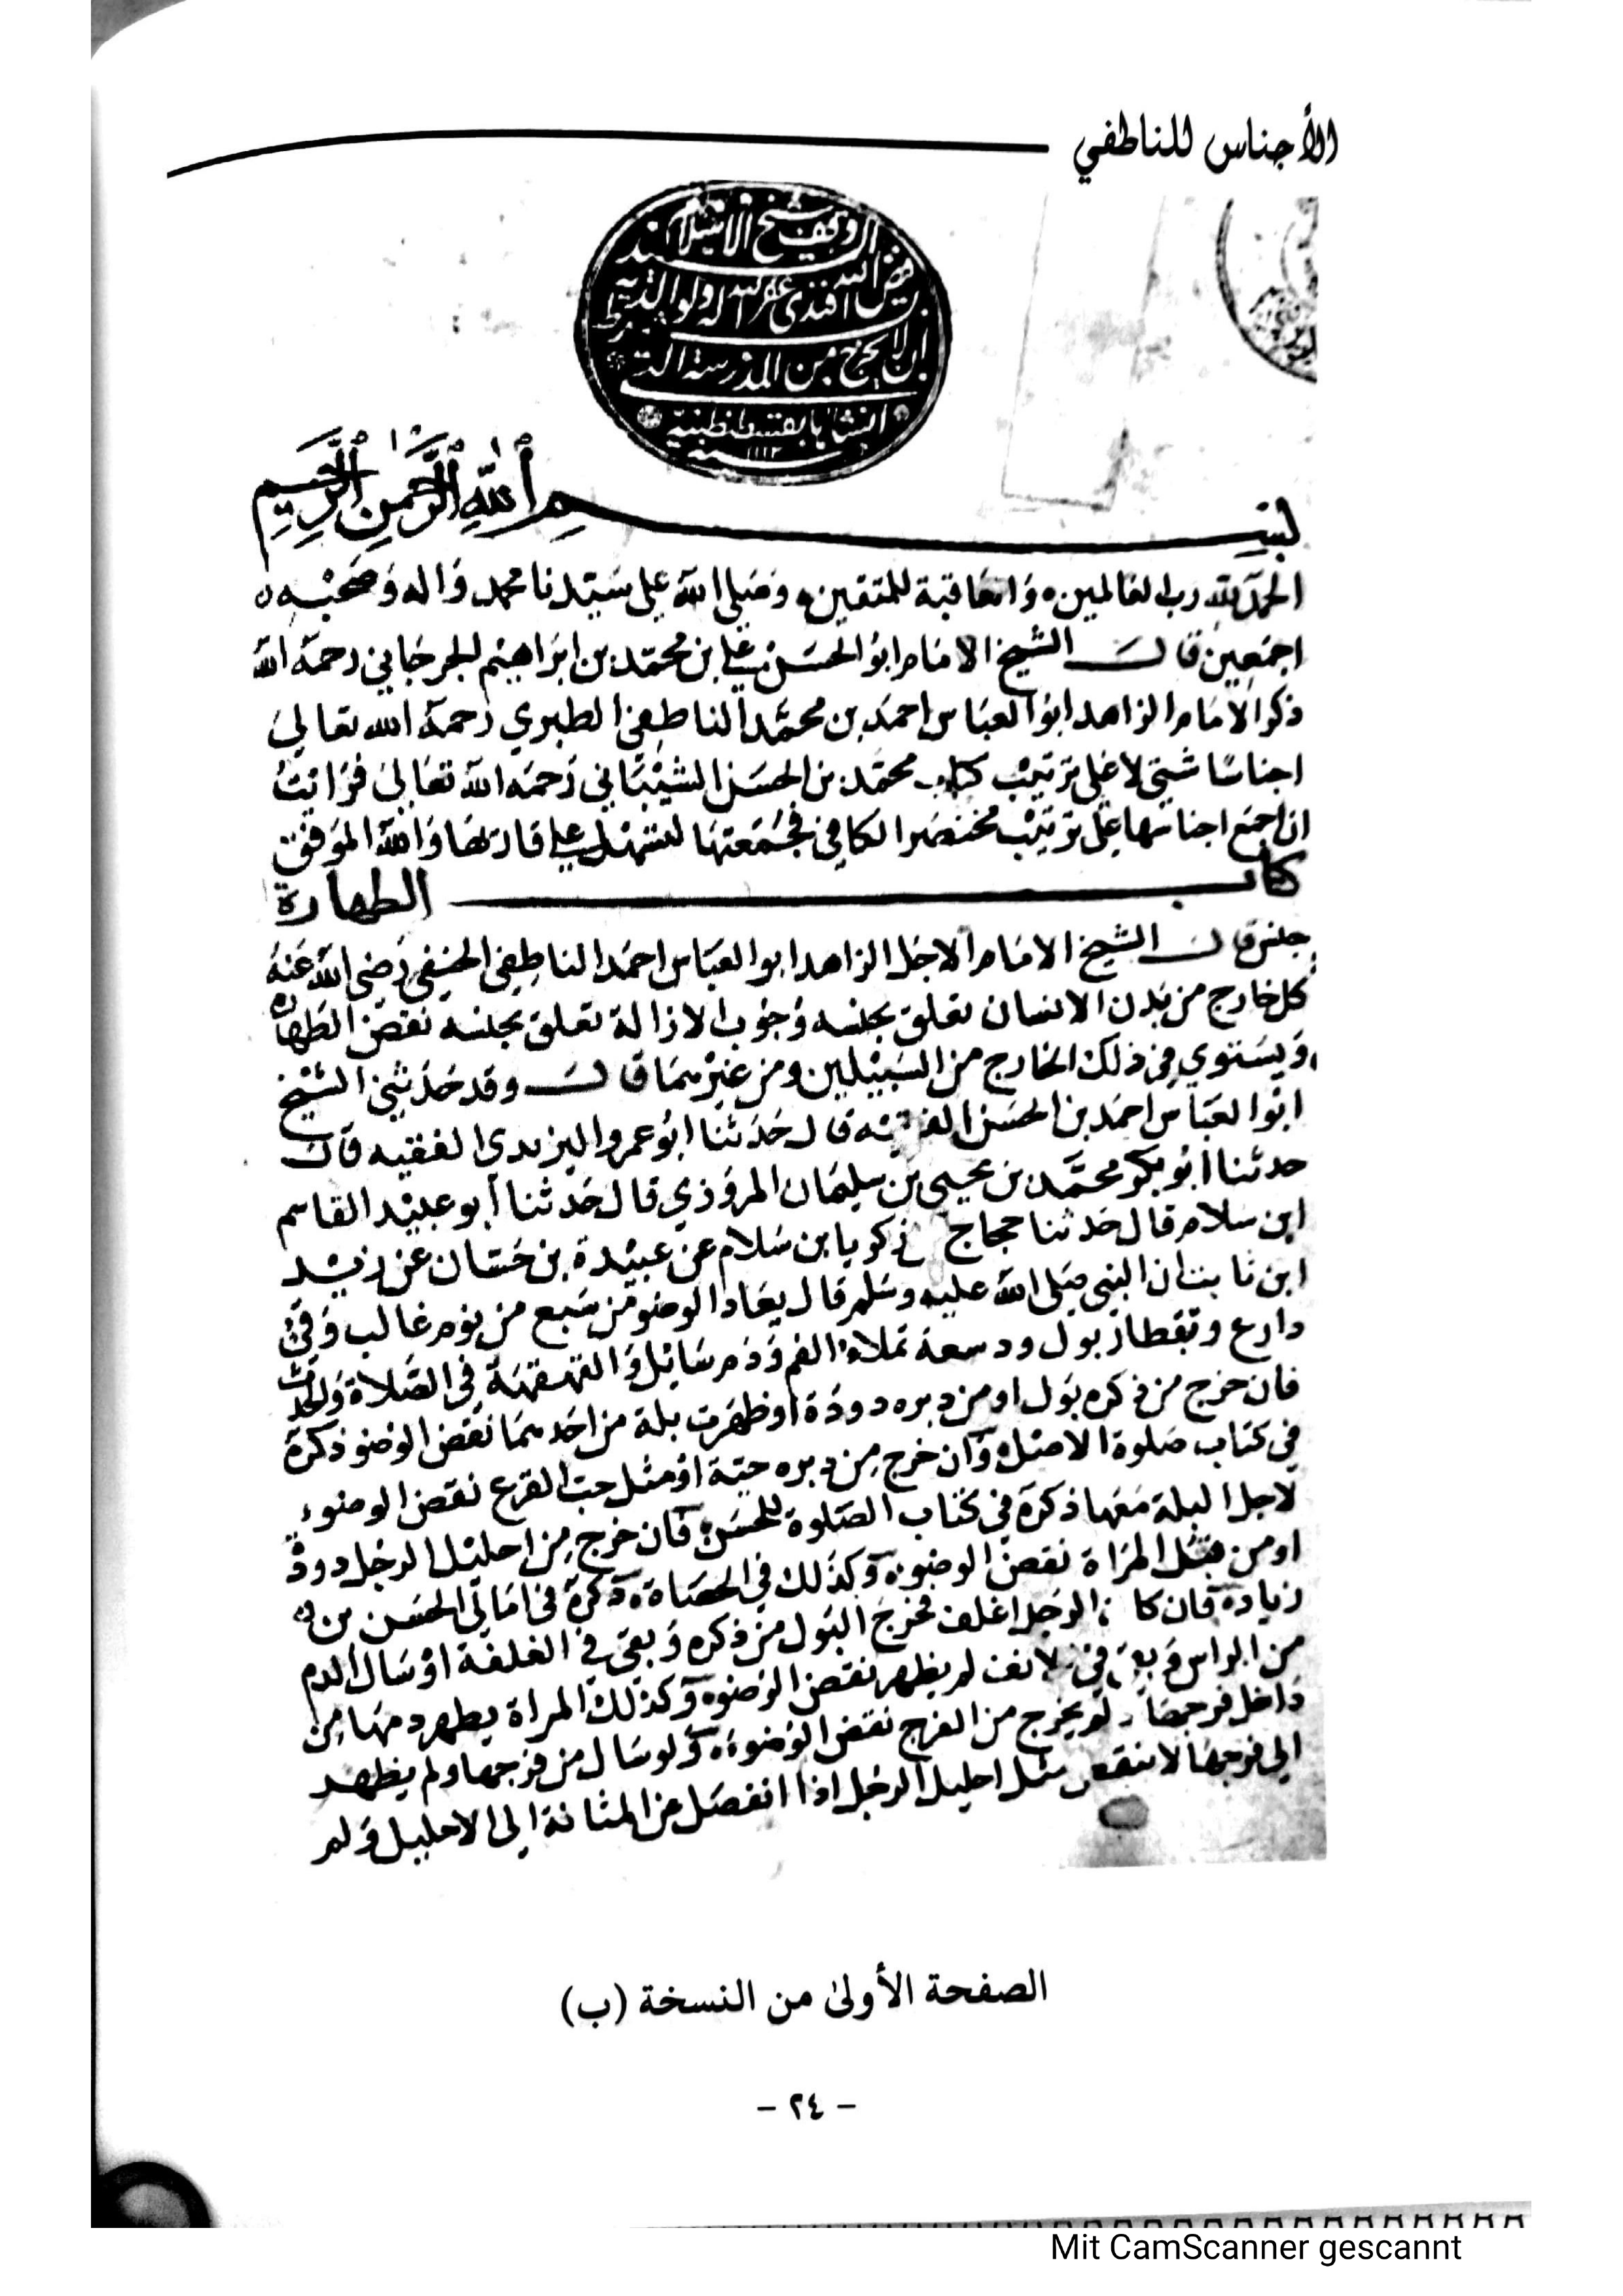 الأجناس للناطفي
وقف شيخ الاسلام السيد
فيض الله افندي غفر الله له ولوالديه بشرط
ان لا يخرج من المدرسة التي
انشاها بقسطنطينية
سنة ١١١٢
بسم الله الرحمن الرحيم
الحمد لله رب العالمين والعاقبة للمتقين وصلى الله على سيدنا محمد واله وصحبه
اجمعين قال الشيخ الامام ابو الحسن علي بن محمد بن ابراهيم الجرجاني رحمه الله
ذكر الامام الزاهد ابو العباس احمد بن محمد الناطفي الطبري رحمه الله تعالى
اجناسا شتى لا على ترتيب كتاب محمد بن الحسن الشيباني رحمه الله تعالى فرايت
ان اجمع اجناسها على ترتيب مختصر الكافي فجمعتها لتسهل على قارئها والله الموفق
كتاب الطهارة
جنس قال الشيخ الامام الاجل الزاهد ابو العباس احمد الناطفي الحنفي رضي الله عنه
كل خارج من بدن الانسان تعلق بجنسه وجوب الازالة تعلق بجنسه نقض الطهارة
ويستوي في ذلك الخارج من السبيلين ومن غيرهما قال وقد حدثني الشيخ
ابو العباس احمد بن الحسن الفقيه قال حدثنا ابو عمرو اليزيدي الفقيه قال
حدثنا ابو بكر محمد بن يحيى بن سليمان المروزي قال حدثنا أبو عبيد القاسم
ابن سلام قال حدثنا حجاج زكريا بن سلام عن عبيدة بن حسان عن زيد
ابن ثابت ان النبي صلى الله عليه وسلم قال يعاد الوضوء من سبع من نوم غالب وقئ
دارع وتقطار بول ودسعة تملاء الفم ودم سائل والقهقهة في الصلاة والحدث
فان خرج من ذكره بول او من دبره دودة او ظهرت بلة من احدهما نقض الوضو ذكره
في كتاب صلوة الاصل وان خرج من دبره حية او مثل حب القرع نقض الوضوء
لاجل البلة معها ذكره في كتاب الصلوة للحسن فان خرج من احليل الرجل دودة
او من قبل المراة نقض الوضوء وكذلك في الحصاة ذكره في امالي الحسن بن
زياد فان كان الرجل اغلف فخرج البول من ذكره وبقي في الغلفة او سال الدم
من الراس وبقي في الانف لم يظهر نقض الوضوء وكذلك المراة يطهر دمها من
داخل فرجها لم يخرج من الفرج نقض الوضوء ولو سال من فرجها ولم يظهر
الى فرجها لا ينقض مثل احليل الرجل اذا انفصل عن المثانة الى الاحليل ولم
الصفحة الأولىٰ من النسخة (ب)
- ٢٤ -
Mit CamScanner gescannt